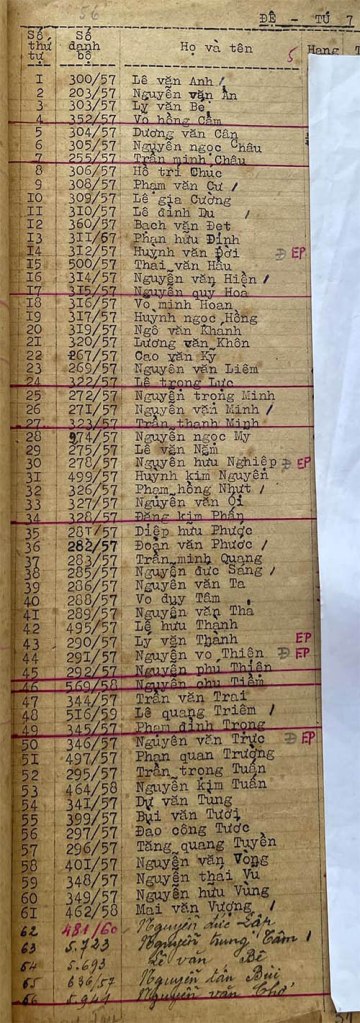 56
ĐỆ - TỨ 7
Số thứ tự Số danh bộ Họ và tên 5 Hạng
I 300/57 Lê văn Anh /
2 203/57 Nguyễn văn Ân
3 303/57 Lý văn Bé
4 352/57 Võ hồng Cẩm
5 304/57 Dương văn Cân
6 305/57 Nguyễn ngọc Châu
7 255/57 Trần minh Châu
8 306/57 Hồ trí Chuc
9 308/57 Phạm văn Cư /
I0 309/57 Lê gia Cường
II 3I0/57 Lê đình Du /
I2 360/57 Bạch văn Đẹt
I3 3II/67 Phan hữu Đính
I4 3I2/57 Huỳnh văn Đời Đ EP
I5 500/57 Thái văn Hầu
I6 3I4/57 Nguyễn văn Hiện /
I7 3I5/57 Nguyễn quý Hoa
I8 3I6/57 Võ minh Hoan
I9 3I7/57 Huỳnh ngọc Hồng
20 3I9/57 Ngô văn Khánh
2I 320/57 Lương văn Khôn
22 267/57 Cao văn Kỹ
23 269/57 Nguyễn văn Liêm
24 322/57 Lê trọng Lực
25 272/57 Nguyễn trọng Minh
26 27I/57 Nguyễn văn Minh /
27 323/57 Trần thanh Minh
28 974/57 Nguyễn ngọc My
29 275/57 Lê văn Năm
30 278/57 Nguyễn hữu Nghiệp Đ EP
3I 499/57 Huỳnh kim Nguyên
32 326/57 Phạm hồng Nhựt /
33 327/57 Nguyễn văn Ơi
34 328/57 Đặng kim Phấn
35 28I/57 Diệp hữu Phước
36 282/57 Đoàn văn Phước /
37 283/57 Trần minh Quang
38 285/57 Nguyễn đức Sang /
39 286/57 Nguyễn văn Ta
40 288/57 Võ duy Tâm
4I 289/57 Nguyễn văn Thà
42 495/57 Lê hữu Thạnh
43 290/57 Lý văn Thành EP
44 29I/57 Nguyễn vo Thiện Đ EP
45 292/57 Nguyễn phú Thiện
46 569/58 Nguyễn chu Tiềm
47 344/57 Trần văn Trai
48 5I6/59 Lê quang Triêm /
49 345/57 Phạm đình Trọng
50 346/57 Nguyễn văn Trực Đ EP
5I 497/57 Phan quan Trường
52 295/57 Trần trọng Tuấn
53 464/58 Nguyễn kim Tuấn
54 34I/57 Dự văn Tung
55 399/57 Bùi văn Tươi
56 297/57 Đào công Tước
57 296/57 Tăng quang Tuyền
58 40I/57 Nguyễn văn Vòng
59 348/57 Nguyễn thái Vu
60 349/57 Nguyễn hữu Vùng
6I 462/58 Mai văn Vượng /
62 481/60 Nguyễn đức Lân
63 5.723 Nguyễn trung Tâm /
64 5.693 Lê văn Bê
65 636/57 Nguyễn tấn Bửu
66 5.944 Nguyễn văn Thơ